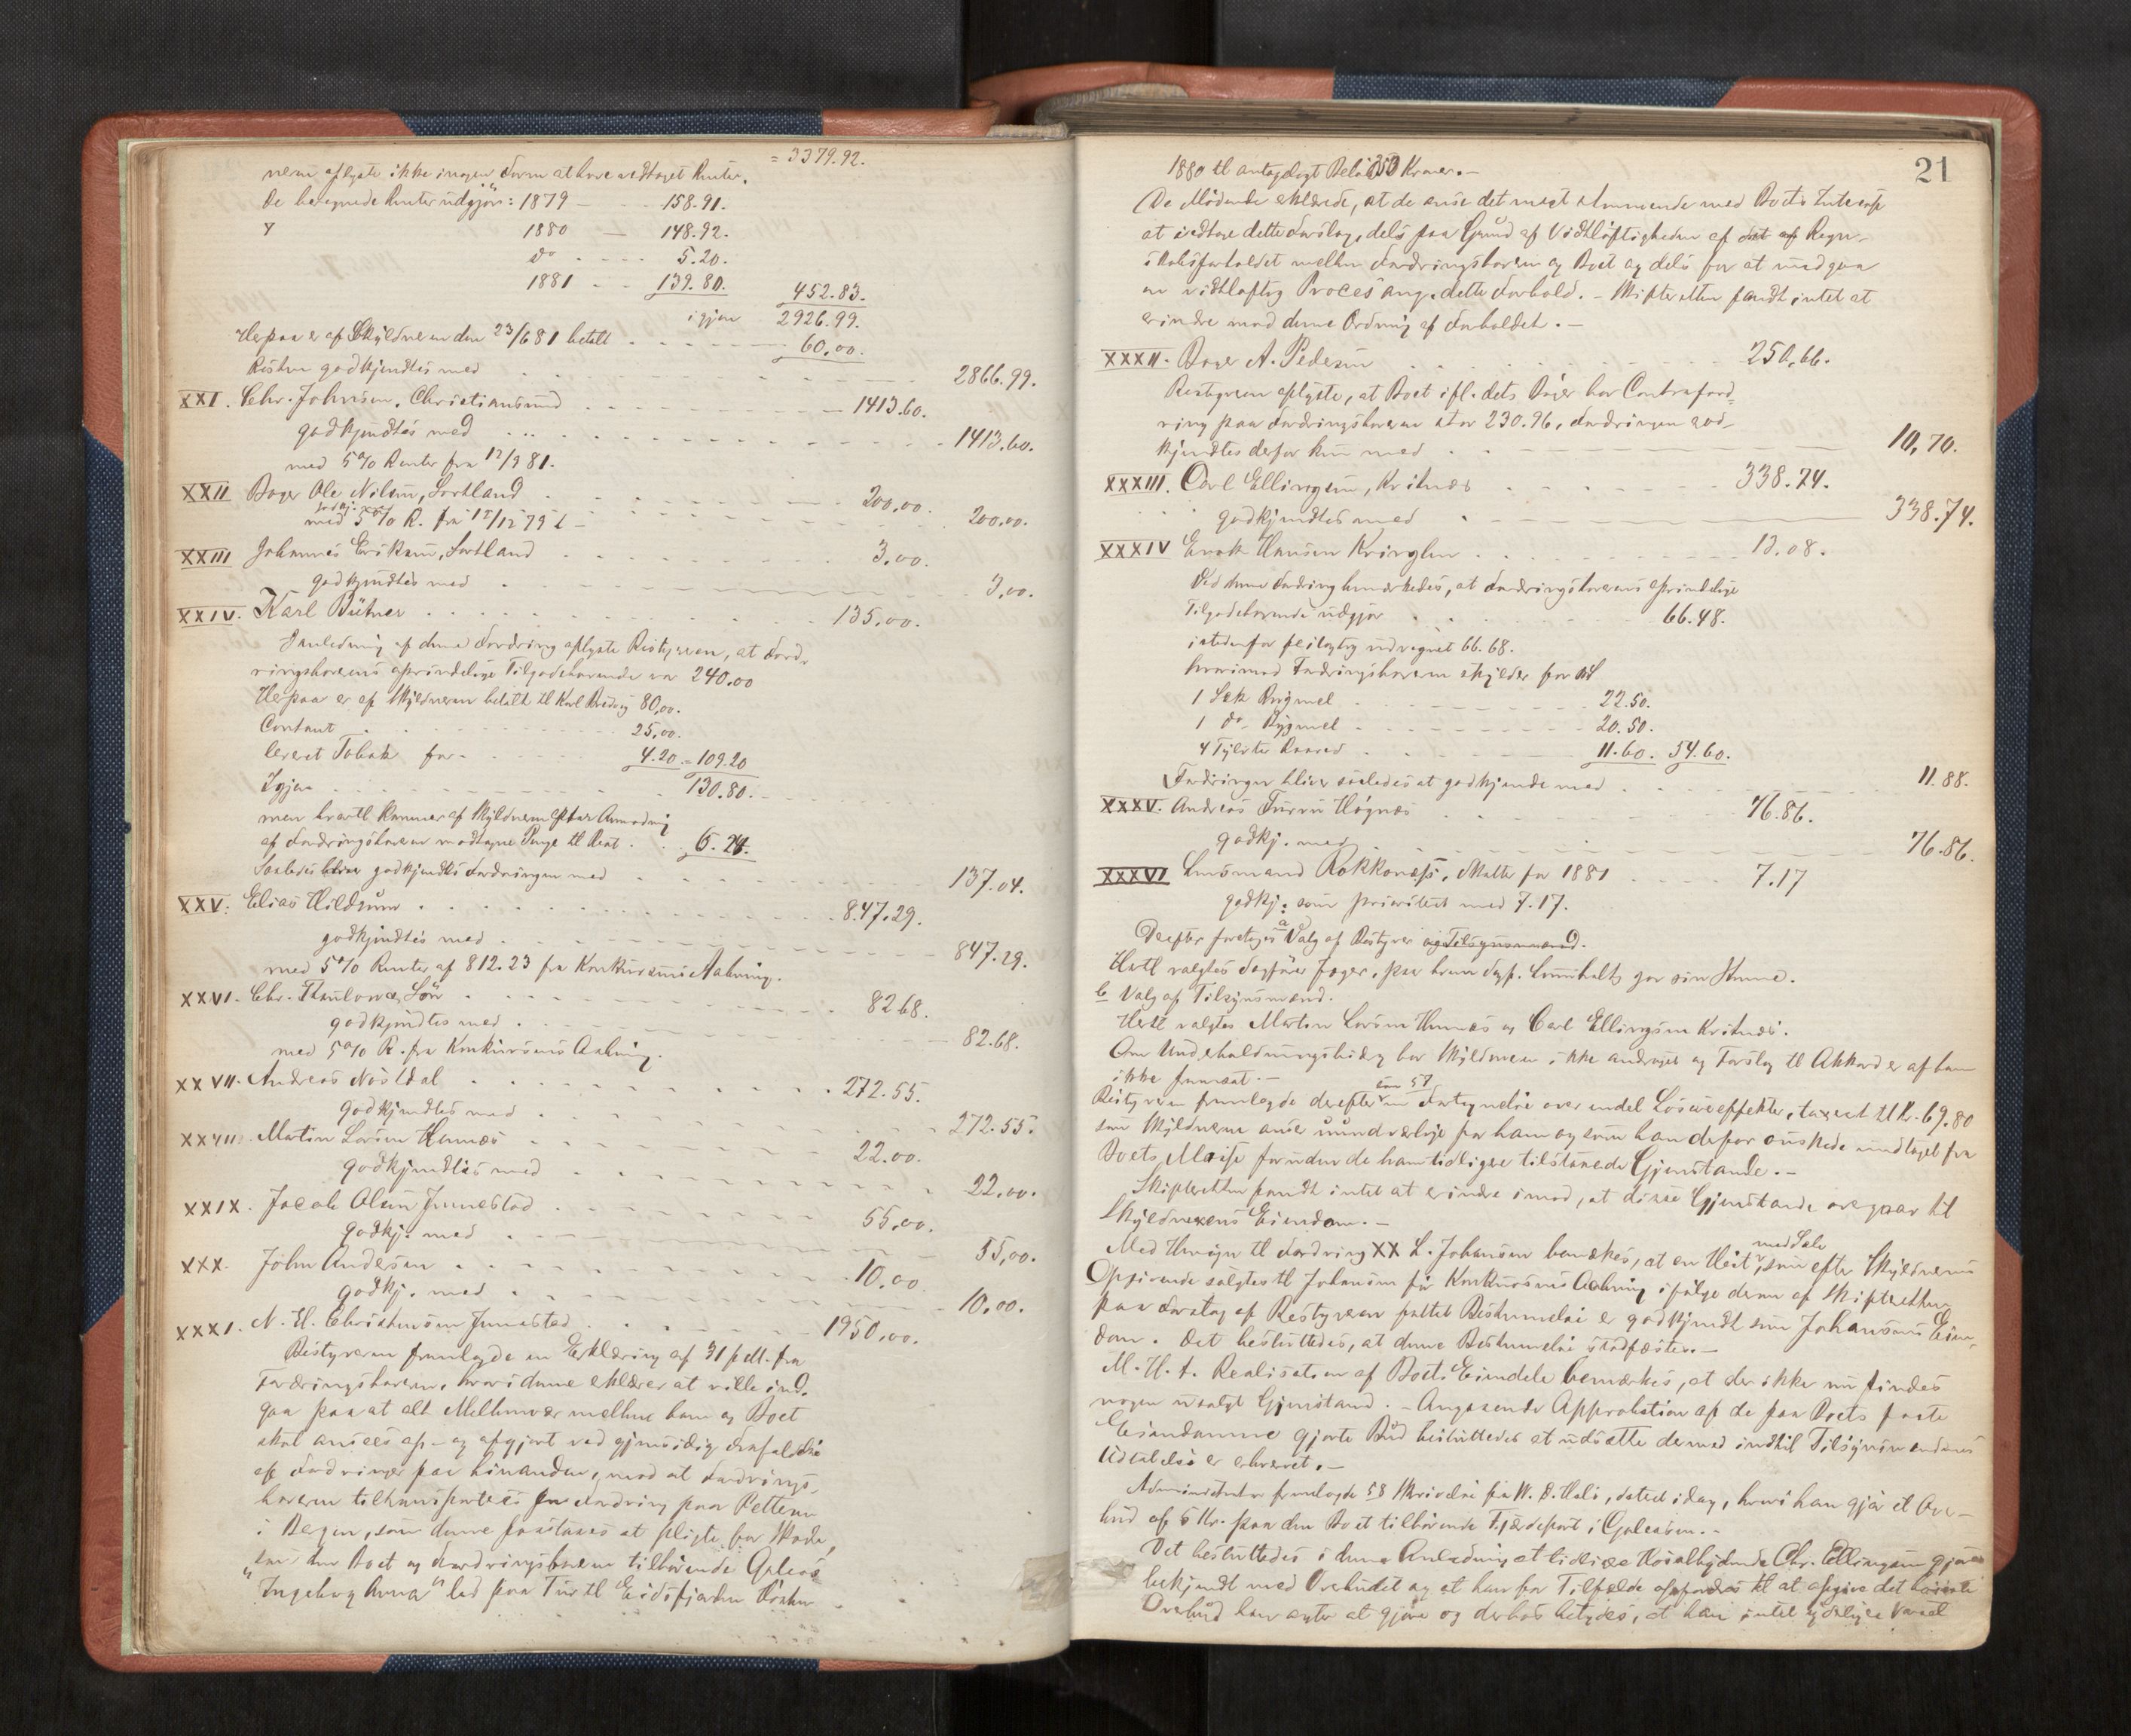 = 3379.92.
neren oplyste ikke i nogen Form at have vedtaget Renter.
De beregnede Renter udgjør: 1879 — 158.91.
1880 — 148.92.
do . . . . 5.20.
1881 . . 139.80. 452.83.
igjen 2926.99.
Herpaa er af Skyldneren den 23/6 81 betalt . . . . 60,00.
Resten godkjendtes med 2866.99.
XXI. Chr. Johnsen, Christiansund . . . . 1413.60.
godkjendtes med . . . . 1413.60.
med 5% Renter fra 12/9 81.
XXII Boger Ole Nilsen, Sortland . . . . 200,00.
godkj.
med 5% R. fra 15/12 79 200,00.
XXIII Johannes Eriksen, Sortland . . . . 3,00.
godkjendtes med . . . . 3,00.
XXIV. Karl Bütner . . . . 135,00.
I Anledning af denne Fordring oplyste Bestyreren, at Ford-
ringshaverens oprindelige Tilgodehavende var 240,00
Herpaa er af Skyldneren betalt til Karl 80,00.
Contant . . . . 25,00.
leveret Tobak for . . . . 4.20. = 109.20
Igjen . . . . 130.80.
men hvortil kommer af Skyldneren efter Anmodning
af Fordringshaveren modtagne Penge til 6.24.
Saaledes bliver godkjendtes Fordringen med . . . . 137.04.
XXV. Elias Hildrum . . . . 847.29.
godkjendtes med . . . . 847.29.
med 5% Renter af 812.23 fra Konkursens Aabning.
XXVI. Chr. Søn . . . . 82.68.
godkjendtes med . . . . 82.68.
med 5% R. fra Konkursens Aabning.
XXVII. Andreas Nøstdal . . . . 272.55.
godkjendtes med . . . . 272.55.
XXVIII. Martin Larsen . . . . 22.00.
godkjendtes med . . . . 22,00.
XXIX. Jacob Olsen Jennestad . . . . 55,00.
godkj. med . . . . 55,00.
XXX. John Andersen . . . . 10,00
godkj. med . . . . 10,00.
XXXI. N. H. Christensen Jennestad . . . . 1950,00.
Bestyreren fremlagde en Erklæring af 31 f. M. fra
Fordringshaveren, hvori denne erklærer at ville ind-
gaa paa at alt Mellemvær mellem ham og Boet
skal ansees op- og afgjort ved gjensidig Frafaldelse
af Fordringer paa hinanden, mod at Fordrings-
haveren tiltransporteres Fordring paa Pettersen
i Bergen, som denne paastaaes at pligte for Skade,
som den Boet og Fordringshaveren tilhørende Galeas
"Ingeborg Anna" led paa Tur til Eidsfjorden
21
1880 til antageligt Beløb 350 Kroner.—
De Mødende erklærede, at de ansee det mest stemmende med Boets Interesse
at vedtage dette Forslag, dels paa Grund af Vidtløftigheden af Regn-
skabsforholdet mellem Fordringshaveren og Boet og dels for at undgaa
en vidtløftig Proces ang. dette Forhold. — Skifteretten fandt intet at
erindre mod denne Ordning af Forholdet. —
XXXII. Boger A. Pedersen . . . . 250,66.
Bestyreren oplyste, at Boet ifl. dets Bøger har Contraford-
ring paa Fordringshaveren stor 230.96, Fordringen god-
kjendtes derfor kun med . . . . 10,70.
XXXIII. Carl Ellingsen, Kritnæs . . . . 338.74.
godkjendtes med . . . . 338.74.
XXXIV Enok Hansen . . . . 13.08.
Ved denne Fordring bemærkedes, at Fordringshaverens oprindelige
Tilgodehavende udgjør . . . . 66.48.
istedenfor feilagtig udregnet 66.68.
hvorimod Fordringshaveren skylder for
1 Sæk Rugmel . . . . 22.50.
1 do Bygmel . . . . 20.50.
4 Tylvter . . . . 11.60. 54.60.
Fordringen bliver saaledes at godkjende med . . . . 11.88.
XXXV. Andreas Høgnæs . . . . 76.86.
godkj. med . . . . 76.86.
XXXVI Lensmand Rokkonæs, Skatter for 1881 . . . . 7.17
godkj. som prioriteret med 7.17.
Derefter foretoges a Valg af Bestyrer og Tilsynsmænd.
Hertil valgtes Sagfører Jæger, paa hvem Sagf. gav sin Stemme.
b Valg af Tilsynsmænd.
Hertil valgtes Martin Larsen og Carl Ellingsen Kritnæs.
Om Underholdningsbidrag har Skyldneren ikke andraget og Forslag til Akkord er af ham
ikke fremsat. —
Bestyreren fremlagde derefter som 57 en Fortegnelse over endel Løsøreeffekter, taxeret til Kr. 69.80
som Skyldneren anser uundværlige for ham og som han derfor ønskede undtaget fra
Boets Masse foruden de ham tidligere tilstaaede Gjenstande. —
Skifteretten fandt intet at erindre imod, at disse Gjenstande overgaar til
Skyldnerens Eiendom. —
Med Hensyn til Fordring XX L. Johansen bemærkes, at en Hest med Sele, som efter Skyldnerens
Opgivende solgtes til Johansen før Konkursens Aabning ifølge derom af Skifteretten
paa Forslag af Bestyreren fattet Bestemmelse er godkjendt som Johansens Eien-
dom. Det besluttedes, at denne Bestemmelse stadfæstes. —
M. H. t. Realisation af Boets Eiendele bemærkes, at der ikke nu findes
nogen usolgt Gjenstand. — Angaaende Approbation af de paa Boets faste
Eiendomme gjorte Bud besluttedes at udsætte dermed indtil Tilsynsmændenes
Udtalelse er erhvervet. —
Administrator fremlagde 58 Skrivelse fra W. D. Hals, dateret idag, hvori han gjør et Over-
bud af 5 Kr. paa den Boet tilhørende Fjerdepart i Galeasen. —
Det besluttedes i denne Anledning at tidligere Høistbydende Chr. Ellingsen gjøres
bekjendt med Overbudet og at han for Tilfælde opfordres til at opgive det høieste
Overbud han agter at gjøre og derhos betydes, at han intet yderligere Varsel